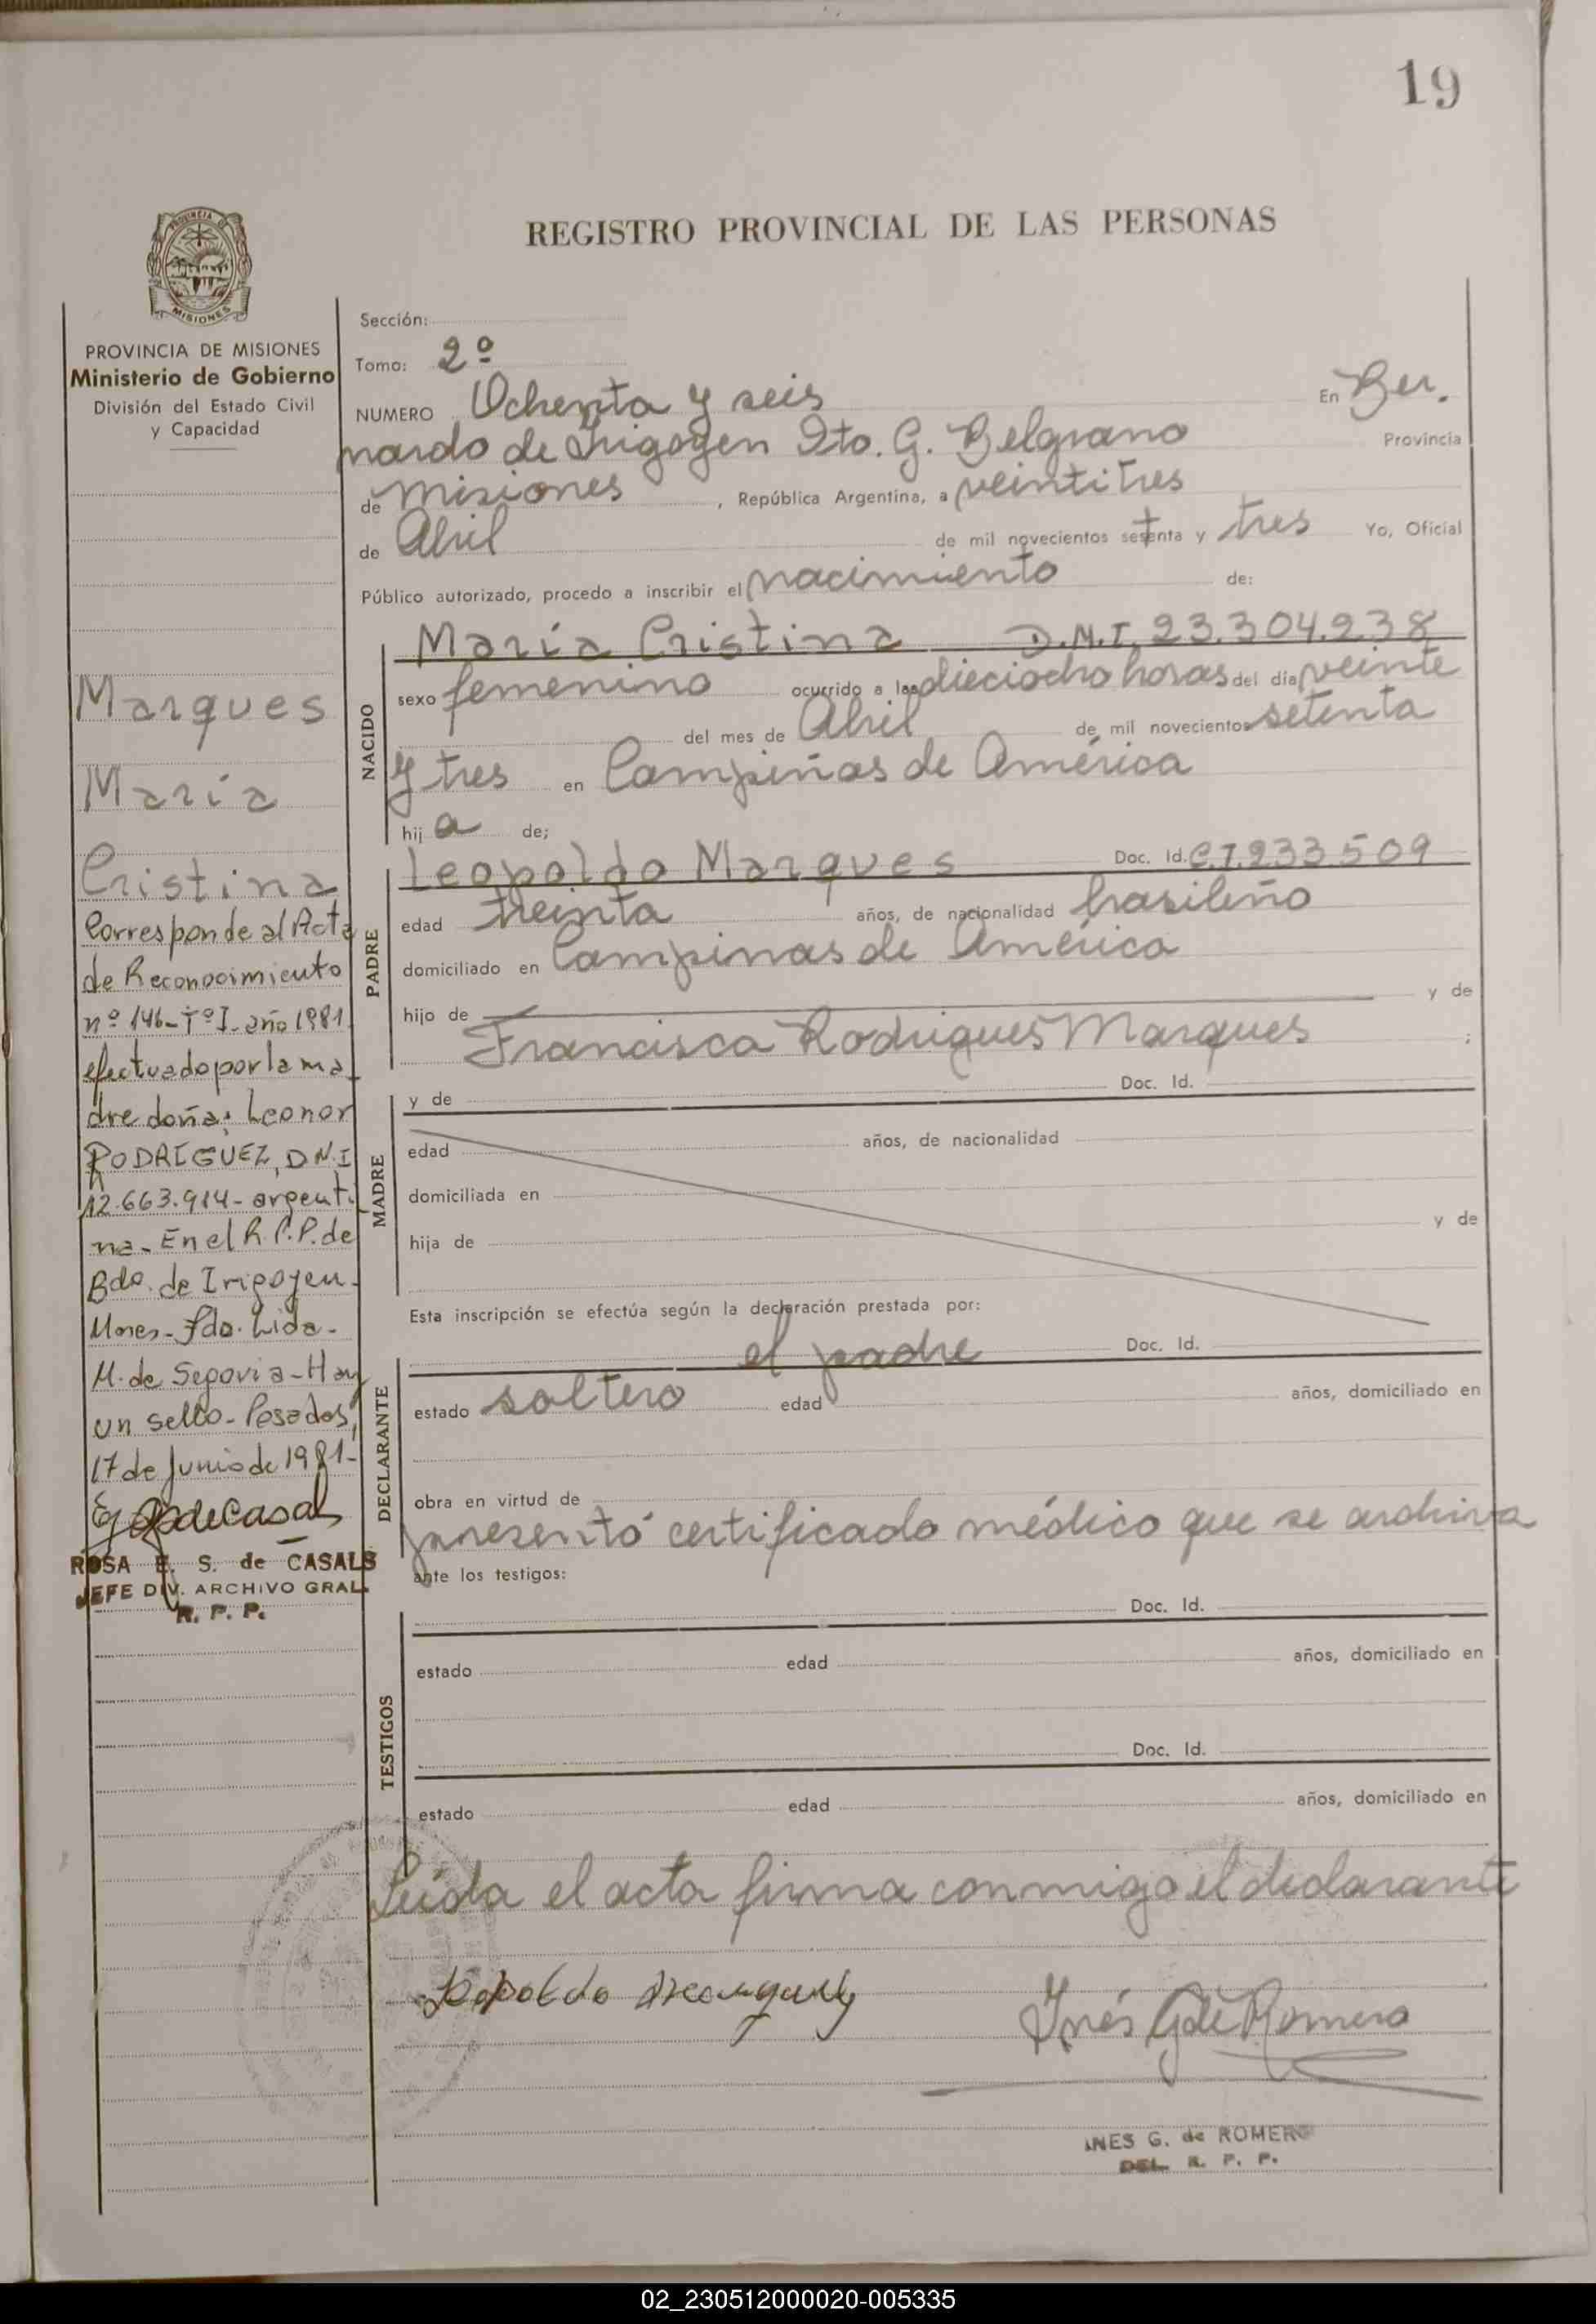 19
REGISTRO PROVINCIAL DE LAS PERSONAS
PROVINCIA DE
MISIONES
PROVINCIA DE MISIONES
Ministerio de Gobierno
División del Estado Civil
y Capacidad
Marques
María
Cristina
Corresponde al Acta
de Reconocimiento
nº 146-Tº I-año 1981
efectuado por la ma_
dre doña: Leonor
RODRÍGUEZ, D.N.I
12.663.914-argenti
na-En el R.P.P. de
Bdo. de Irigoyen-
Mnes-Fdo. Lida-
M. de Segovia-Hay
un sello-Posadas,
17 de Junio de 1981-
ROSA E. S. de CASALS
JEFE DIV. ARCHIVO GRAL.
R. P. P.
Sección:
Tomo: 2º
NUMERO Ochenta y seis En Ber.
nardo de Irigoyen Dto. G. Belgrano Provincia
de Misiones , República Argentina, a veintitres
de Abril de mil novecientos setenta y tres Yo, Oficial
Público autorizado, procedo a inscribir el nacimiento de:
NACIDO
María Cristina D.N.I. 23.304.238
sexo femenino ocurrido a las dieciocho horas del día veinte
del mes de Abril de mil novecientos setenta
y tres en Campiñas de América
hij a de;
PADRE
Leopoldo Marques Doc. Id. C.I. 233509
edad treinta años, de nacionalidad brasileño
domiciliado en Campinas de América
hijo de y de
Francisca Rodrigues Marques ;
MADRE
y de Doc. Id.
edad años, de nacionalidad
domiciliada en
hija de y de
Esta inscripción se efectúa según la declaración prestada por:
DECLARANTE
el padre Doc. Id.
estado soltero edad años, domiciliado en
obra en virtud de
presentó certificado médico que se archiva
ante los testigos:
TESTIGOS
Doc. Id.
estado edad años, domiciliado en
Doc. Id.
estado edad años, domiciliado en
Leída el acta firma conmigo el declarante
Inés G de Romero
INES G. de ROMERO
DEL. R. P. P.
02_230512000020-005335